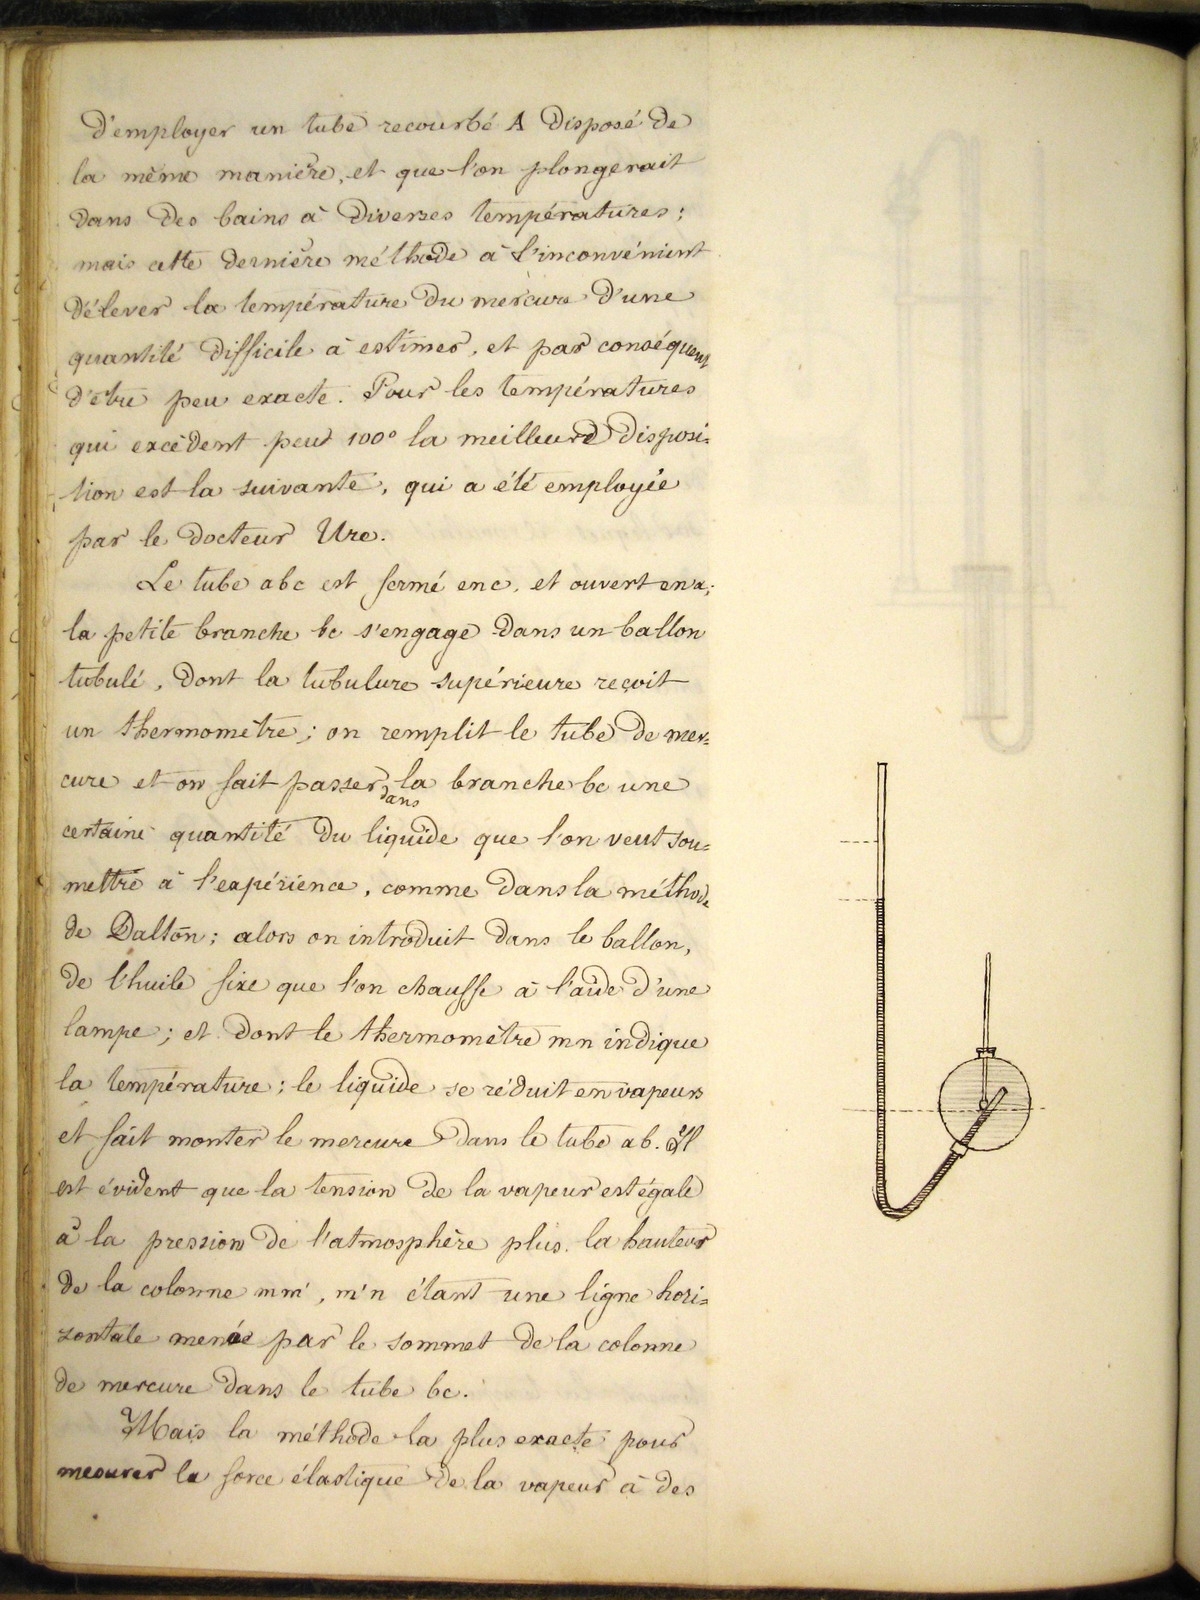 d'employer un tube recourbé A disposé de
la même manière, et que l'on plongerait
dans des bains à diverses températures ;
mais cette dernière méthode a l'inconvénient
d'élever la température du mercure d'une
quantité difficile à estimer, et par conséquent
d'être peu exacte. Pour les températures
qui excèdent peu 100° la meilleure disposi=
tion est la suivante, qui a été employée
par le docteur Ure.
Le tube abc est fermé en c, et ouvert en a ;
la petite branche bc s'engage dans un ballon
tubulé, dont la tubulure supérieure reçoit
un thermomètre ; on remplit le tube de mer=
cure et on fait passer dans la branche bc une
certaine quantité du liquide que l'on veut sou=
mettre à l'expérience, comme dans la méthode
de Dalton ; alors on introduit dans le ballon,
de l'huile fixe que l'on chauffe à l'aide d'une
lampe ; et dont le thermomètre mn indique
la température : le liquide se réduit en vapeurs
et fait monter le mercure dans le tube ab. Il
est évident que la tension de la vapeur est égale
à la pression de l'atmosphère plus la hauteur
de la colonne mm', m'n étant une ligne hori=
zontale menée par le sommet de la colonne
de mercure dans le tube bc.
Mais la méthode la plus exacte pour
mesurer la force élastique de la vapeur à des